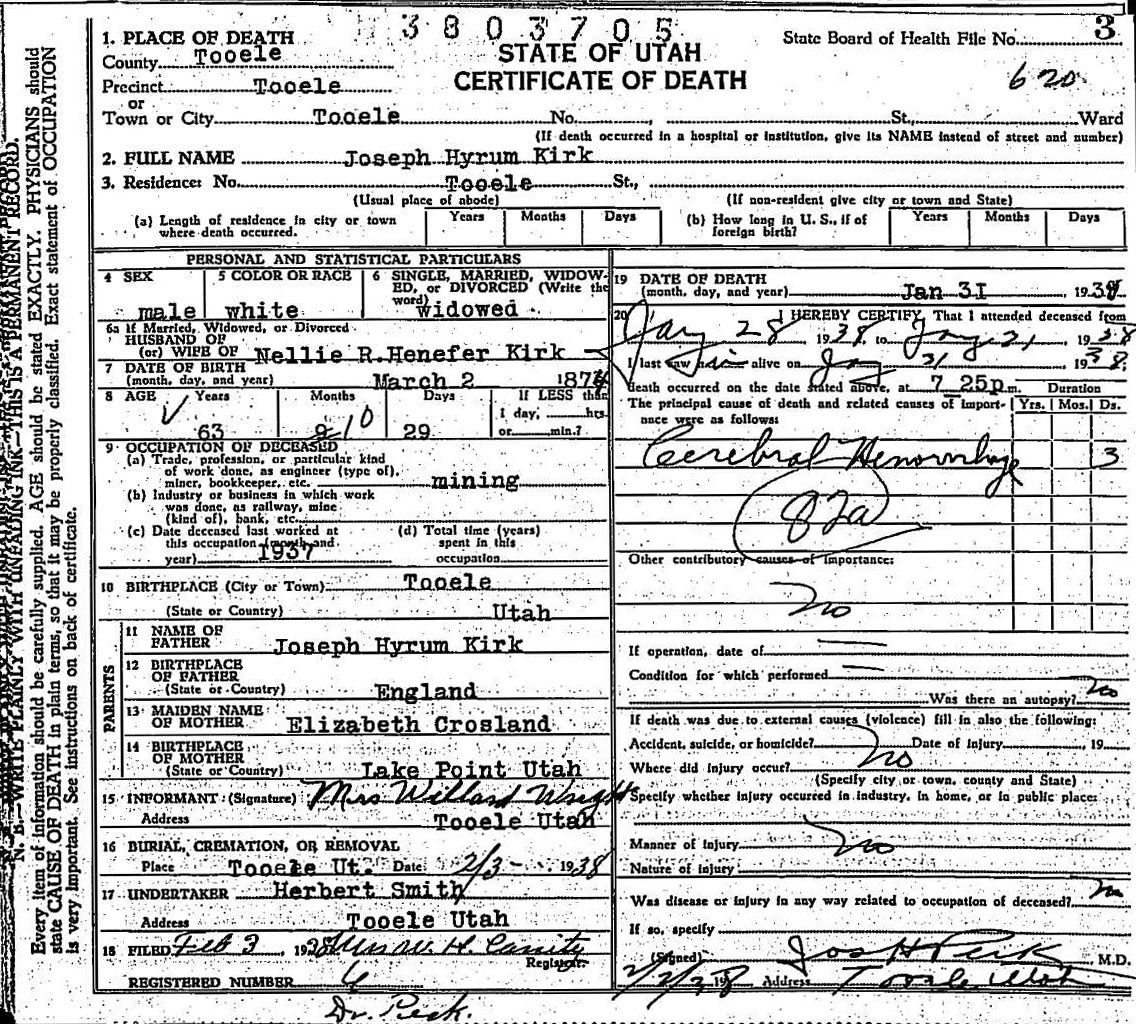 3803705
1. PLACE OF DEATH
County Tooele
STATE OF UTAH
CERTIFICATE OF DEATH
State Board of Health File No. 3
620
Precinct Tooele
or
Town or City Tooele No. , St., Ward
(If death occurred in a hospital or institution, give its NAME instead of street and number)
2. FULL NAME Joseph Hyrum Kirk
3. Residence: No. Tooele St.,
(Usual place of abode) (If non-resident give city or town and State)
(a) Length of residence in city or town where death occurred. Years Months Days (b) How long in U. S., if of foreign birth? Years Months Days
PERSONAL AND STATISTICAL PARTICULARS
4 SEX 5 COLOR OR RACE 6 SINGLE, MARRIED, WIDOW-
ED, or DIVORCED (Write the
word)
male white widowed
6a If Married, Widowed, or Divorced
HUSBAND OF
(or) WIFE OF Nellie R.Henefer Kirk
7 DATE OF BIRTH
(month, day, and year) March 2 1874
8 AGE Years Months Days If LESS than
1 day, hrs.
or min.?
63 9 10 29
9 OCCUPATION OF DECEASED
(a) Trade, profession, or particular kind
of work done, as engineer (type of),
miner, bookkeeper, etc. mining
(b) Industry or business in which work
was done, as railway, mine
(kind of), bank, etc.
(c) Date deceased last worked at
this occupation (month and
year) 1937
(d) Total time (years)
spent in this
occupation
10 BIRTHPLACE (City or Town) Tooele
(State or Country) Utah
PARENTS
11 NAME OF
FATHER Joseph Hyrum Kirk
12 BIRTHPLACE
OF FATHER
(State or Country) England
13 MAIDEN NAME
OF MOTHER Elizabeth Crosland
14 BIRTHPLACE
OF MOTHER
(State or Country) Lake Point Utah
15 INFORMANT (Signature) Mrs Willard Wright
Address Tooele Utah
16 BURIAL, CREMATION, OR REMOVAL
Place Tooele Ut. Date 2/3- 1938
17 UNDERTAKER Herbert Smith
Address Tooele Utah
18 FILED Feb 3, 1938
Registrar
REGISTERED NUMBER 6
Dr. Peck.
19 DATE OF DEATH
(month, day, and year) Jan 31 1938
20 I HEREBY CERTIFY, That I attended deceased from
Jany 28 1938 to Jany 31, 1938
I last saw him alive on Jany 31 38
death occurred on the date stated above, at 7 25p m.
Duration
The principal cause of death and related causes of import-
ance were as follows:
Yrs. Mos. Ds.
Cerebral Hemorrhage 3
82a
Other contributory causes of importance:
no
If operation, date of
Condition for which performed
Was there an autopsy? no
If death was due to external causes (violence) fill in also the following:
Accident, suicide, or homicide? no Date of injury , 19
Where did injury occur?
(Specify city or town, county and State)
Specify whether injury occurred in industry, in home, or in public place:
Manner of injury no
Nature of injury
Was disease or injury in any way related to occupation of deceased? no
If so, specify
(Signed) Jos H Peck M.D.
2/2/38 19 Address Tooele Utah
N. B.—WRITE PLAINLY WITH UNFADING INK—THIS IS A PERMANENT RECORD.
Every item of information should be carefully supplied. AGE should be stated EXACTLY. PHYSICIANS should
state CAUSE OF DEATH in plain terms, so that it may be properly classified. Exact statement of OCCUPATION
is very important. See instructions on back of certificate.